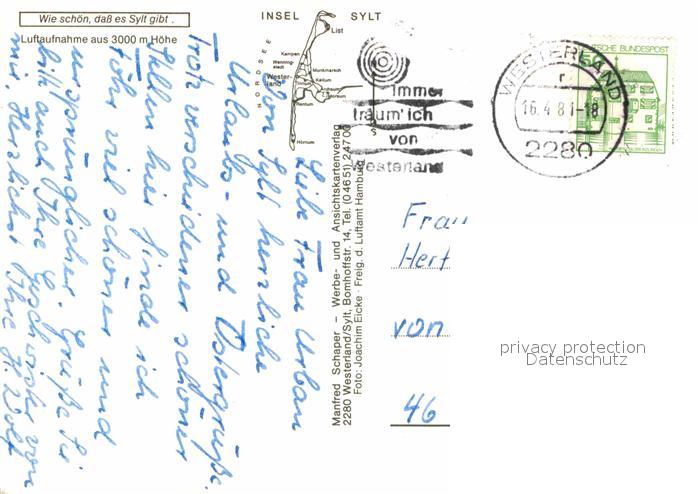 Wie schön, daß es Sylt gibt.
Luftaufnahme aus 3000 m Höhe
INSEL SYLT
NORDSEE
List
Kampen
Wenning-
stedt
Munkmarsch
Wester-
land
Keitum
Archsum
Morsum
Rantum
Hörnum
S
Immer
träum' ich
von
Westerland
WESTERLAND
r
16.4.81-18
2280
DEUTSCHE BUNDESPOST
Liebe Frau Urban
Von Sylt herzliche
Urlaubs- und Ostergrüße.
Trotz verschiedener schöner
Stellen hier finde ich
Föhr viel schöner und
ursprünglicher. Grüße Sie
bitte auch Ihre Geschwister von
mir Herzlichst Ihre H. Wolf
Manfred Schaper – Werbe- und Ansichtskartenverlag
2280 Westerland/Sylt, Bomhoffstr. 14, Tel. (04651) 24703
Foto: Joachim Eicke · Freig. d. Luftamt Hamburg
Frau
Hert
von
46
privacy protection
Datenschutz